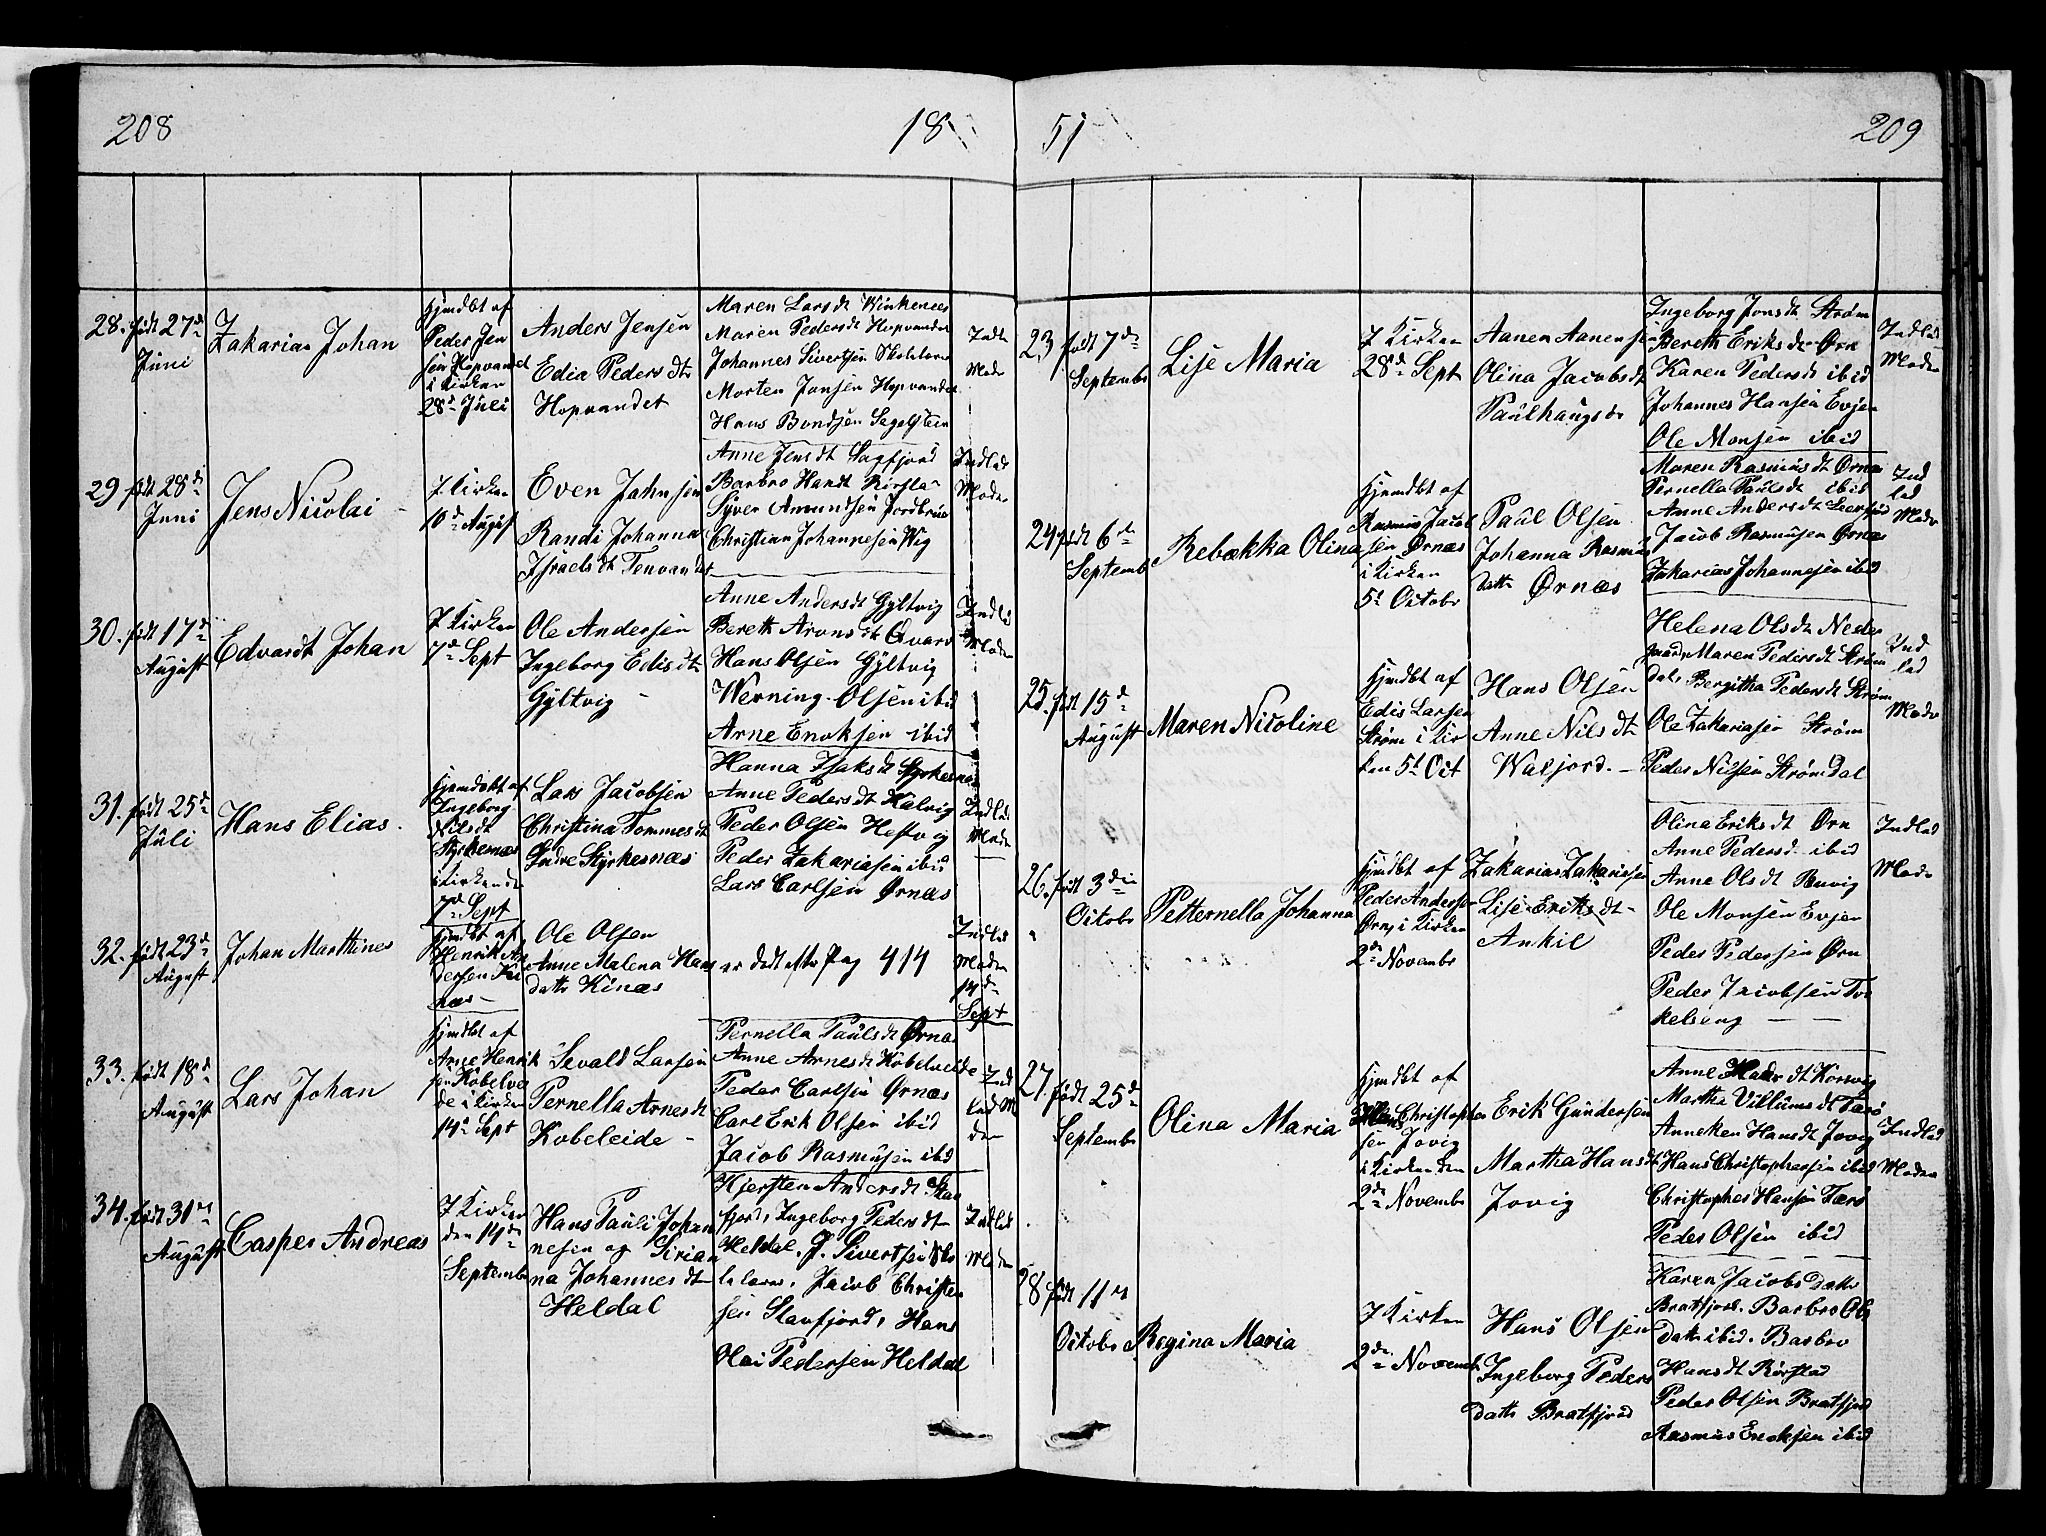 208
18
28. født 27de
Juni
Zakarias Johan
hjemdbt af
Peder Jen
sen Hopvandet
i Kirken
28de Juli
Anders Jensen
Edia Peders dtr
Hopvandet
Maren Larsdt
Maren Pedersdt Hopvandet
Johannes Sivertsen Skolelærer
Morten Jonsen Hopvandet
Hans Bendsen Segelsteen
Indl
Mode
29 født 28de
Juni
Jens Nicolai
I Kirken
10de August
Even Jahnsen
Randi Johanna
Israelsdt Tenvandet
Anne Jensdt Sagfjord
Barbro Hansdt Rørsta
Syver Amundsen Jordbrue
Christian Johannesen Wig
Indlad
Moder
30. født 17de
August
Edvardt Johan
I Kirken
7de Sept
Ole Andersen
Ingeborg Edisdtr
Gyltvig
Anne Andersdt Gyltvig
Bereth Aronsdt Qvarv
Hans Olsen Gyltvig
Werning Olsen ibid
Arne Enoksen ibid
Indla
Moder
31. født 25de
Juli
Hans Elias.
hjemdøbt af
Ingeborg
Nilsdt
Styrkesnæs
i Kirken de
7de Sept
Lars Jacobsen
Christina Tommesdt
Indre Styrkesnæs
Hanna Isaksdt Styrkesnæs
Anne Pedersdt Kalvig
Peder Olsen Hestvig
Peder Zakariasen ibid
Lars Carlsen Ørnæs
Indla
Mode
32. født 23de
August
Johan Marthines
hjemdbt af
Henrik An
dersen Ki
næs
Ole Olsen
Anne Malena Hans
datter Kinæs
er død efter Pag 414
Indlad
Moder
14de
Sept
33. født 18de
August
Lars Johan
hjemdbt af
Arne Henrik
sen Kobelve
de i Kirken
14de Sept
Sevald Larsen
Pernella Arnesdt
Kobeleide
Pernella Paulsdt Ørnæs
Anne Arnesdt Kobelveide
Peder Carlsen Ørnæs
Carl Erik Olsen ibid
Jacob Rasmusen ibid
Ind
lad M
der
34. født 31te
August
Casper Andreas
I Kirken
den 14de
Septembr
Hans Pauli Johan
nesen og Siria
na Johannesdtr
Heldal
Kjersten Andersdt
fjord, Ingeborg Pedersdtr
Heldal. J. Sivertsen Sko
lelærer. Jacob Christen
sen Slaufjord, Hans
Olai Pedersen Heldal
Indlad
Moder
51
209
23 født 7de
Septembr
Lise Maria
I Kirken
28de Sept
Aanen Aanensen
Olina Jacobsdt
Paulhaugsdr
Ingeborg Jonsdt Strøm
Bereth Eriksdtr Ørn
Karen Pedersdt ibid
Johannes Hansen Evjen
Ole Monsen ibid
Indlad
Moder
24 født 6te
Septemb
Rebækka Olina
hjemdbt af
Rasmus Jacob
sen Ørnæs
i Kirken
5te Octobr
Paul Olsen
Johanna Rasmus
datter Ørnæs
Maren Rasmusdt Ørnæs
Pernella Paulsdt ibid
Anne Andersdt
Jacob Rasmusen Ørnæs
Zakarias Johannesen ibid
Ind
lad
Modr
25. født 15de
August
Maren Nicoline
hjemdbt af
Edis Larsen
Strøm i Kir
ken 5te Oct
Hans Olsen
Anne Nilsdt
Waljord.
Helena Olsdtr Neder
gaard, Maren Pedersdt Strøm
dal, Bergitha Pedersdt Strøm
Ole Zakariasen Strøm
Peder Nilsen Strømdal
Ind
lad
Modr
26. født 3die
Octobr
Petternella Johanna
hjemdbt af
Peder Anderse
Ørn, i Kirken
2de Novembr
Zakarias Zakariasen
Lise Eriksdt
Ankil
Olina Eriksdt Ørn
Anne Pedersd. ibid
Anne Olsdt
Ole Monsen Evjen
Peder Pedersen Ørn
Peder Jacobsen Tor
kelseng
Indlad
Modr
27 født 25de
Septembr
Olina Maria
hjemdbt af
Hans Christopher
sen Jovig
i Kirken den
2de Novembr
Erik Gundersen
Martha Hansdt
Jovig
Anne
Martha Villumsdt Færø
Anneken Hansdt Jovig
Hans Christophersen ibid
Christopher Hansen Færø
Peder Olsen ibid
Indlad
Moder
28 født 11te
Octobr
Regina Maria
I Kirken
2de Novemb
Hans Olsen
Ingeborg Peders
datter Bratfjord
Karen Jacobsdatter
Bratfjord. Barbro Ols
datter ibid. Barbro
Hansdt Rørstad
Peder Olsen Bratfjord
Rasmus Enoksen ibid